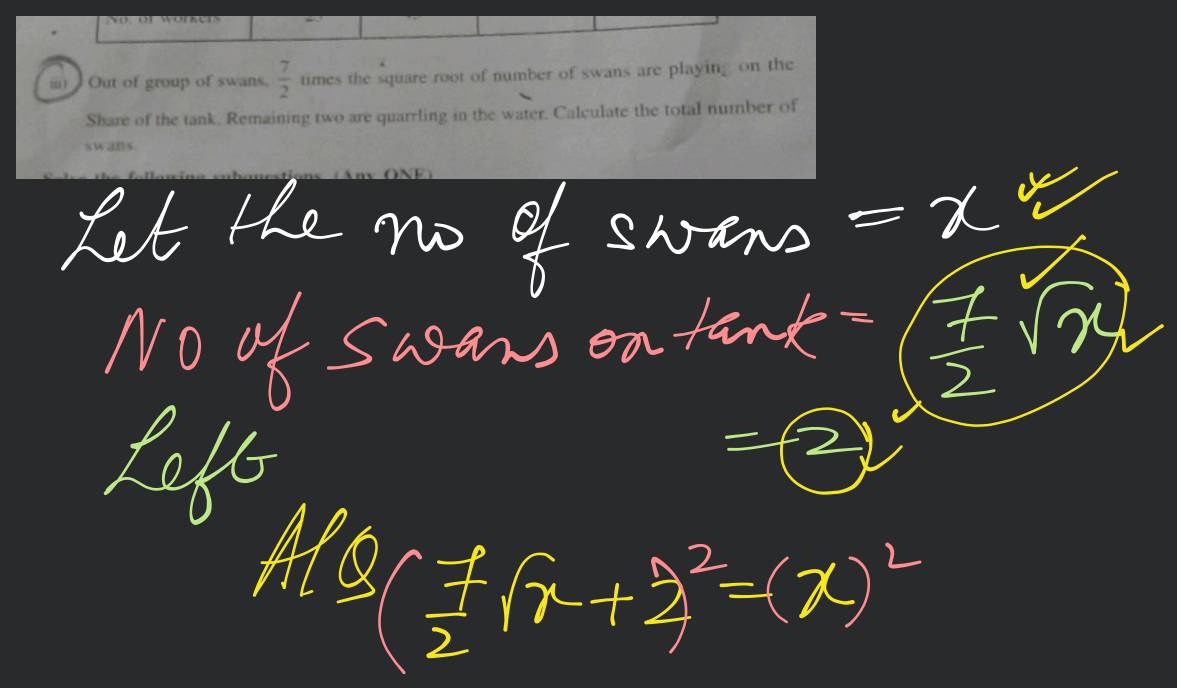 No. of workers
iii) Out of group of swans, 7/2 times the square root of number of swans are playing on the
Share of the tank. Remaining two are quarrling in the water. Calculate the total number of
swans.
the following subquestions (Any ONE)
Let the no of swans = x
No of swans on tank = 7/2 √x
Left = 2
A/Q (7/2 √x + 2)² = (x)²